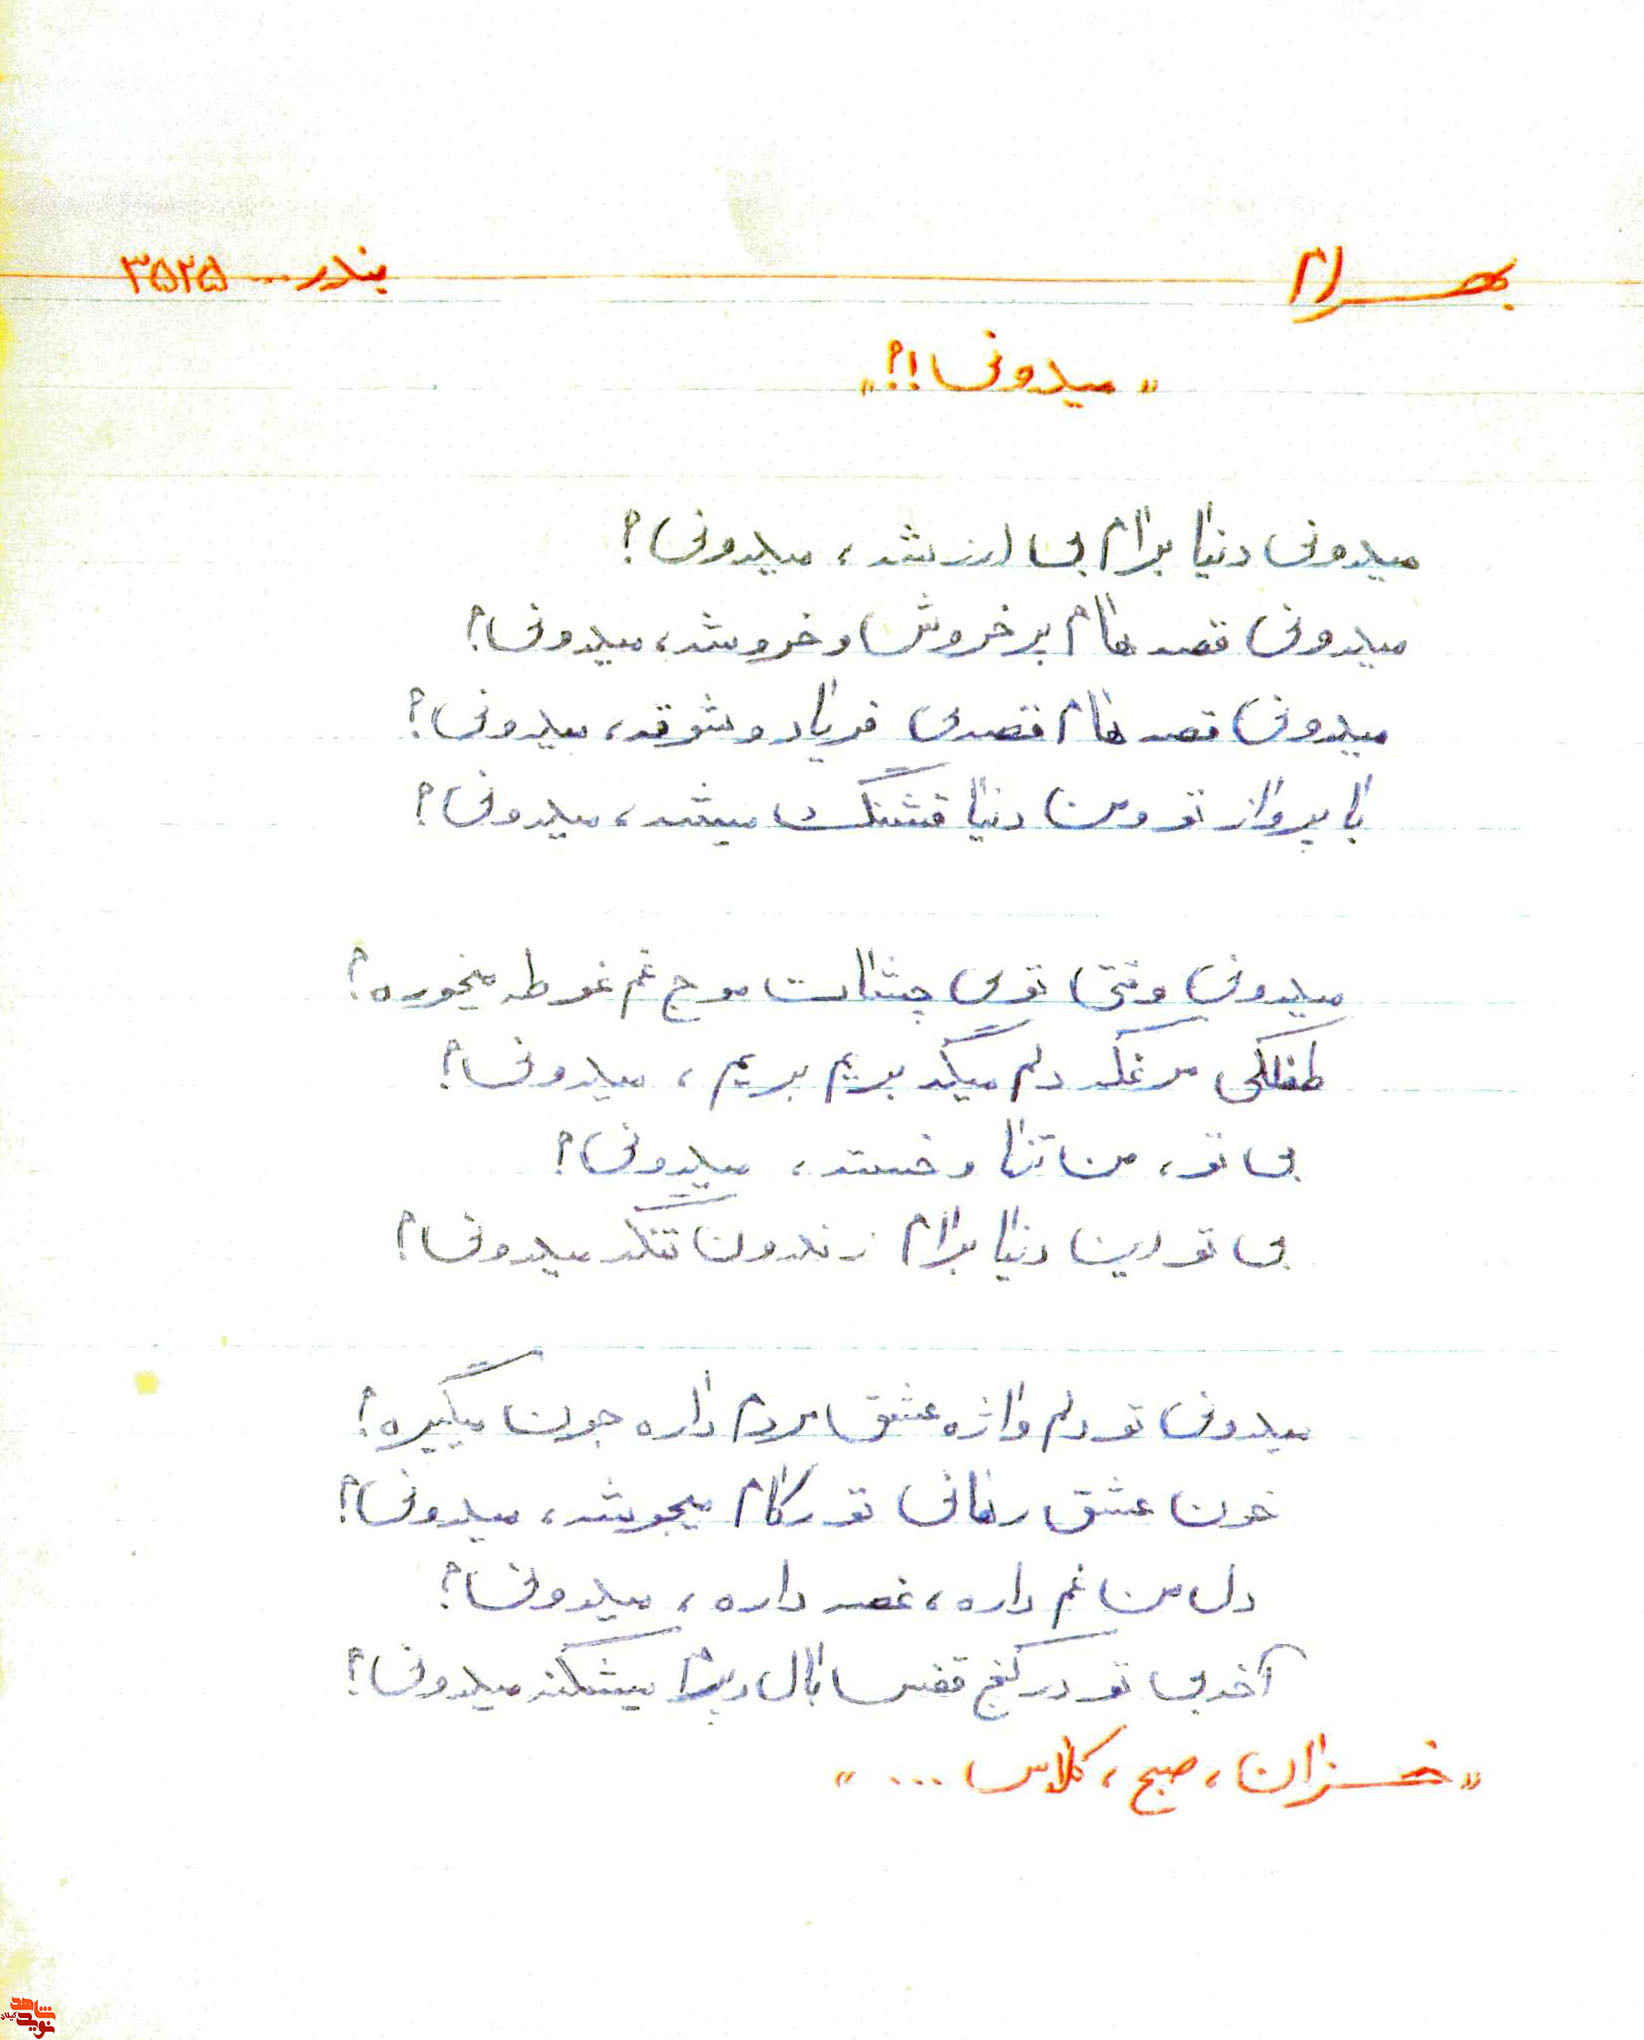 بهرام
بندر... ۳۵۲۵
"میدونی!؟"
میدونی دنیا برام بی ارزشه، میدونی؟
میدونی قصه هام پر خروش و خروشه، میدونی؟
میدونی قصه هام قصه‌ی فریاد و شوقه، میدونی؟
با پرواز تو و من دنیا قشنگ میشه، میدونی؟
میدونی وقتی توی چشات موج غم غوطه میخوره؟
طفلکی مرغک دلم میگه بریم بریم، میدونی؟
بی تو، من تنها و خسته، میدونی؟
بی تو این دنیا برام زندون تنگه میدونی؟
میدونی تو دلم واژه عشق مردم داره جون میگیره؟
خون عشق رهائی تو رگام میجوشه، میدونی؟
دل من غم داره، غصه داره، میدونی؟
آخه بی تو در کنج قفس بال و پرم میشکنه میدونی؟
"خزان، صبح، کلاس ..."
شاهد
نوید
گیلان